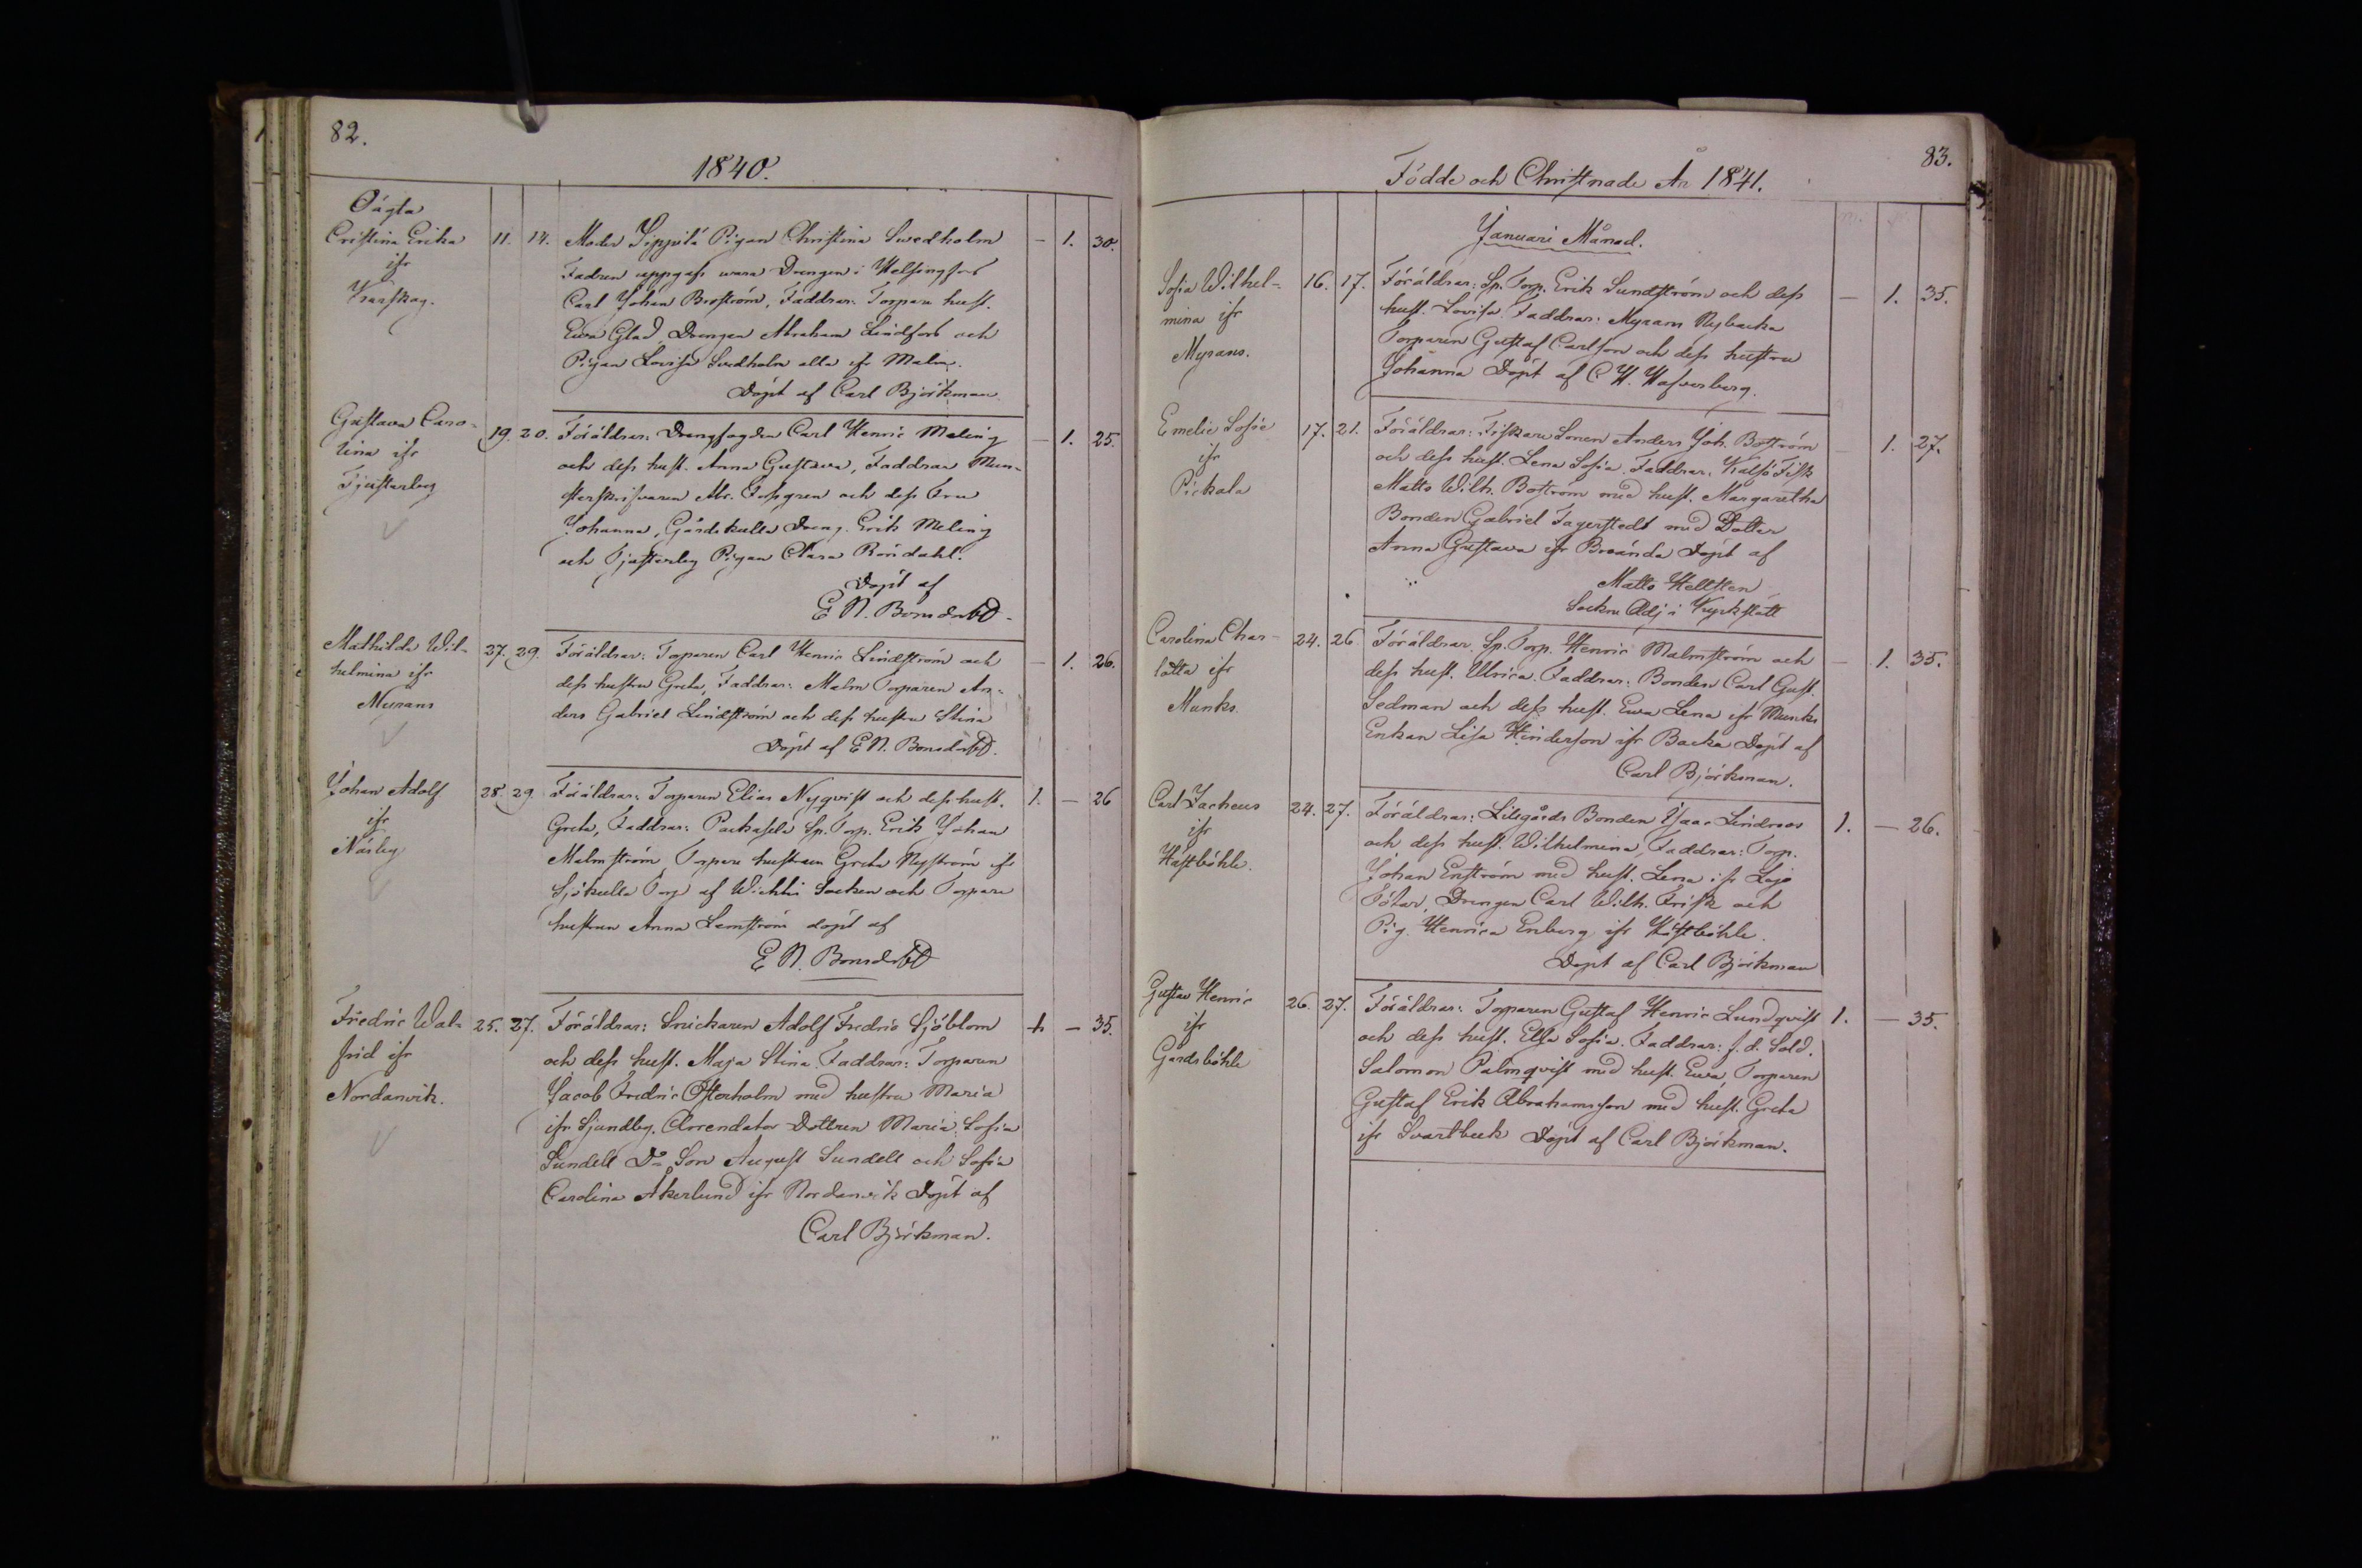 82.
1840.
Oägta
Cristina Erika
ifr
11. 14. Moder Sippilä Pigan Christina Swedholm — 1. 30.
Fadren uppgafs wara Drengen i Helsingfors
Carl Johan Broström, Faddrar: Torpare hust.
Ewa Glad, Drengen Abraham Lindfors och
Pigan Lovisa Svedholm alla ifr Malm.
Döpt af Carl Björkman.
Gustava Caro-
lina ifr
Tjusterby
19. 20. Föräldrar: Drengfogden Carl Henric Meling — 1. 25.
och dess hust. Anna Gustava, Faddrar Mön-
sterskrifvaren Abr. Forsgren och dess Fru
Johanna, Gårdskulla Dreng. Erik Meling
och Tjusterby Pigan Clara Röndahl.
Döpt af
E N. Bonsdorff.
Mathilda Wil-
helmina ifr
Myrans
27. 29. Föräldrar: Torparen Carl Henric Lindström och — 1. 26.
dess hustru Greta, Faddrar: Malm Torparen An-
ders Gabriel Lindström och dess hustru Stina
Döpt af E N. Bonsdorff.
Johan Adolf
ifr
Näsby
28. 29. Föräldrar: Torparen Elias Nyqvist och dess hust. 1. — 26
Greta, Faddrar: Sp. Torp. Erik Johan
Malmström Torpare hustrun Greta Nyström ifr
Sjökulla Torp af Wichtis Socken och Torpare
hustrun Anna Lemström döpt af
E N. Bonsdorff
Fredric Wal-
frid ifr
Nordanvik.
25. 27. Föräldrar: Snickaren Adolf Fredric Sjöblom 1. — 35.
och dess hust. Maja Stina. Faddrar: Torparen
Jacob Fredric Österholm med hustru Maria
ifr Sjundby. Arrendator Dottren Maria Sofia
Sundell Do Son August Sundell och Sofia
Carolina Åkerlund ifr Nordanvik Döpt af
Carl Björkman.
83.
Födde och Christnade År 1841.
Januari Månad.
Sofia Wilhel-
mina ifr
Myrans.
16. 17. Föräldrar: Sp. Torp. Erik Sundström och dess — 1. 35.
hust. Lovisa. Faddrar: Myrans Nybacka
Torparen Gustaf Carlson och dess hustru
Johanna Döpt af C H. Hafverberg.
Emelie Sofie
ifr
Pickala
17. 21. Föräldrar: Fiskare Sonen Anders Joh. Boström — 1. 27.
och dess hust. Lena Sofia. Faddrar. Kalfö Fisk
Matts Wilh. Boström med hust. Margaretha
Bonden Gabriel Fagerstedt med Dotter
Anna Gustava ifr Breända Döpt af
Matts Hellsten
Sockne Adj i Kyrkslätt
Carolina Char-
lotta ifr
Munks.
24. 26. Föräldrar. Sp. Torp. Henric Malmström och — 1. 35.
dess hust. Ulrica. Faddrar: Bonden Carl Gust.
Sedman och dess hust. Ewa Lena ifr Munks
Enkan Lisa Hinderson ifr Backa Döpt af
Carl Björkman.
Carl Zacheus
ifr
Hästböhle.
24. 27. Föräldrar: Lillgårds Bonden Isaac Lindroos 1. — 26.
och dess hust. Wilhelmina, Faddrar: Torp.
Johan Enström med hust. Lena ifr Lajo
Drengen Carl Wilh. Frisk och
Pig. Henrica Enberg ifr Hästböhle.
Döpt af Carl Björkman
Gustav Henric
ifr
Gårdsböhle
26. 27. Föräldrar: Torparen Gustaf Henric Lundqvist 1. — 35.
och dess hust. Elsa Sofia. Faddrar: f. d. Sold.
Salomon Palmqvist med hust. Ewa, Torparen
Gustaf Erik Abrahamsson med hust. Greta
ifr Svartbeck Döpt af Carl Björkman.